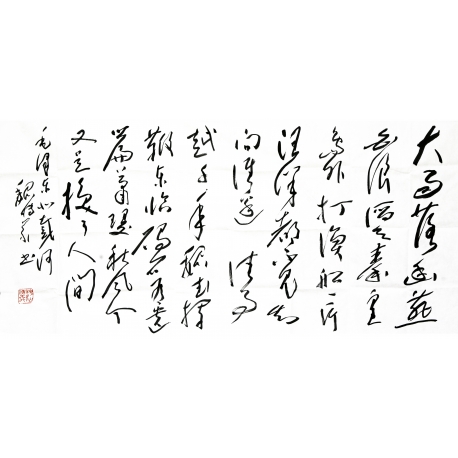 大雨落幽燕
白浪滔天秦皇
岛外打漁船一片
汪洋都不见知
向谁边 往事
越千年魏武挥
鞭东临碣石有遗
篇萧瑟秋风今
又是换了人间
毛泽东北戴河
书